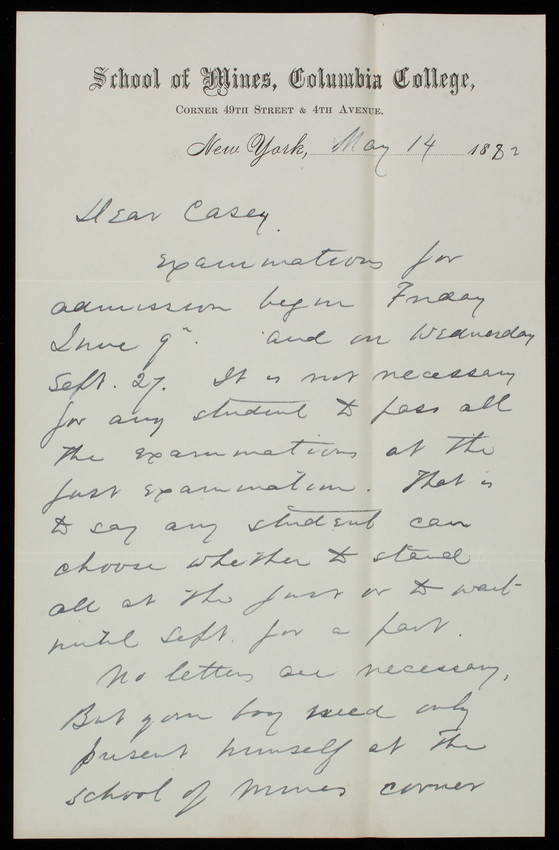 School of Mines, Columbia College,
Corner 49th Street & 4th Avenue.
New York, May 14 1882
Dear Casey.
Examinations for
admission begin Friday
June 9". and on Wednesday
Sept. 27. It is not necessary
for any student to pass all
the examinations at the
first examination. That is
to say any student can
choose whether to stand
all at the first or to wait
until Sept. for a part.
No letters are necessary,
But your boy need only
present himself at the
School of Mines corner